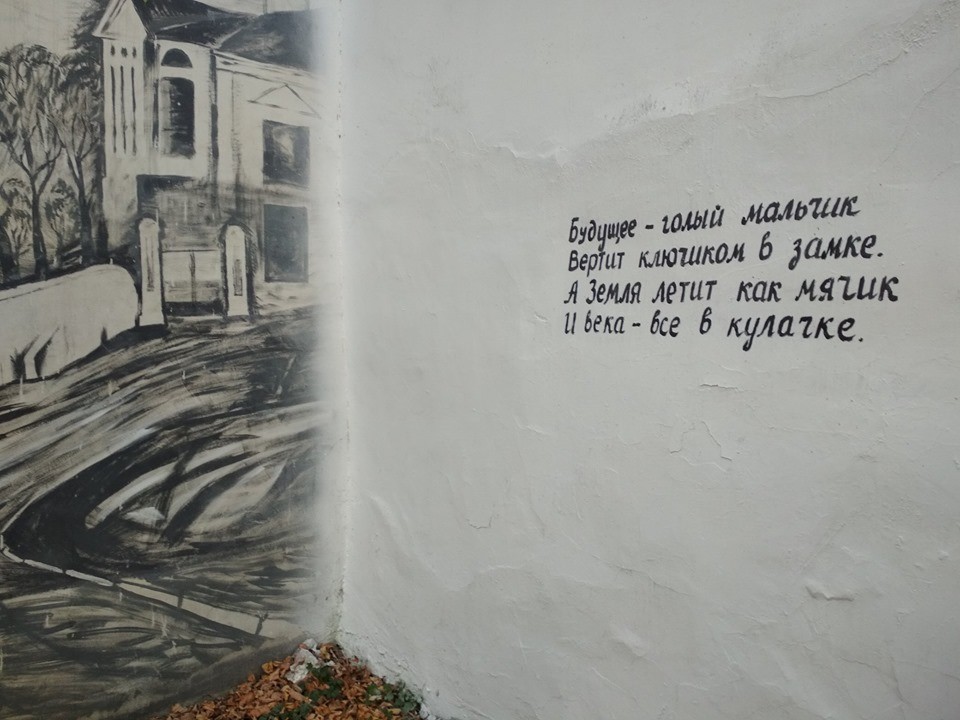 Будущее - голый мальчик
Вертит ключиком в замке.
А Земля летит как мячик
И века - все в кулачке.